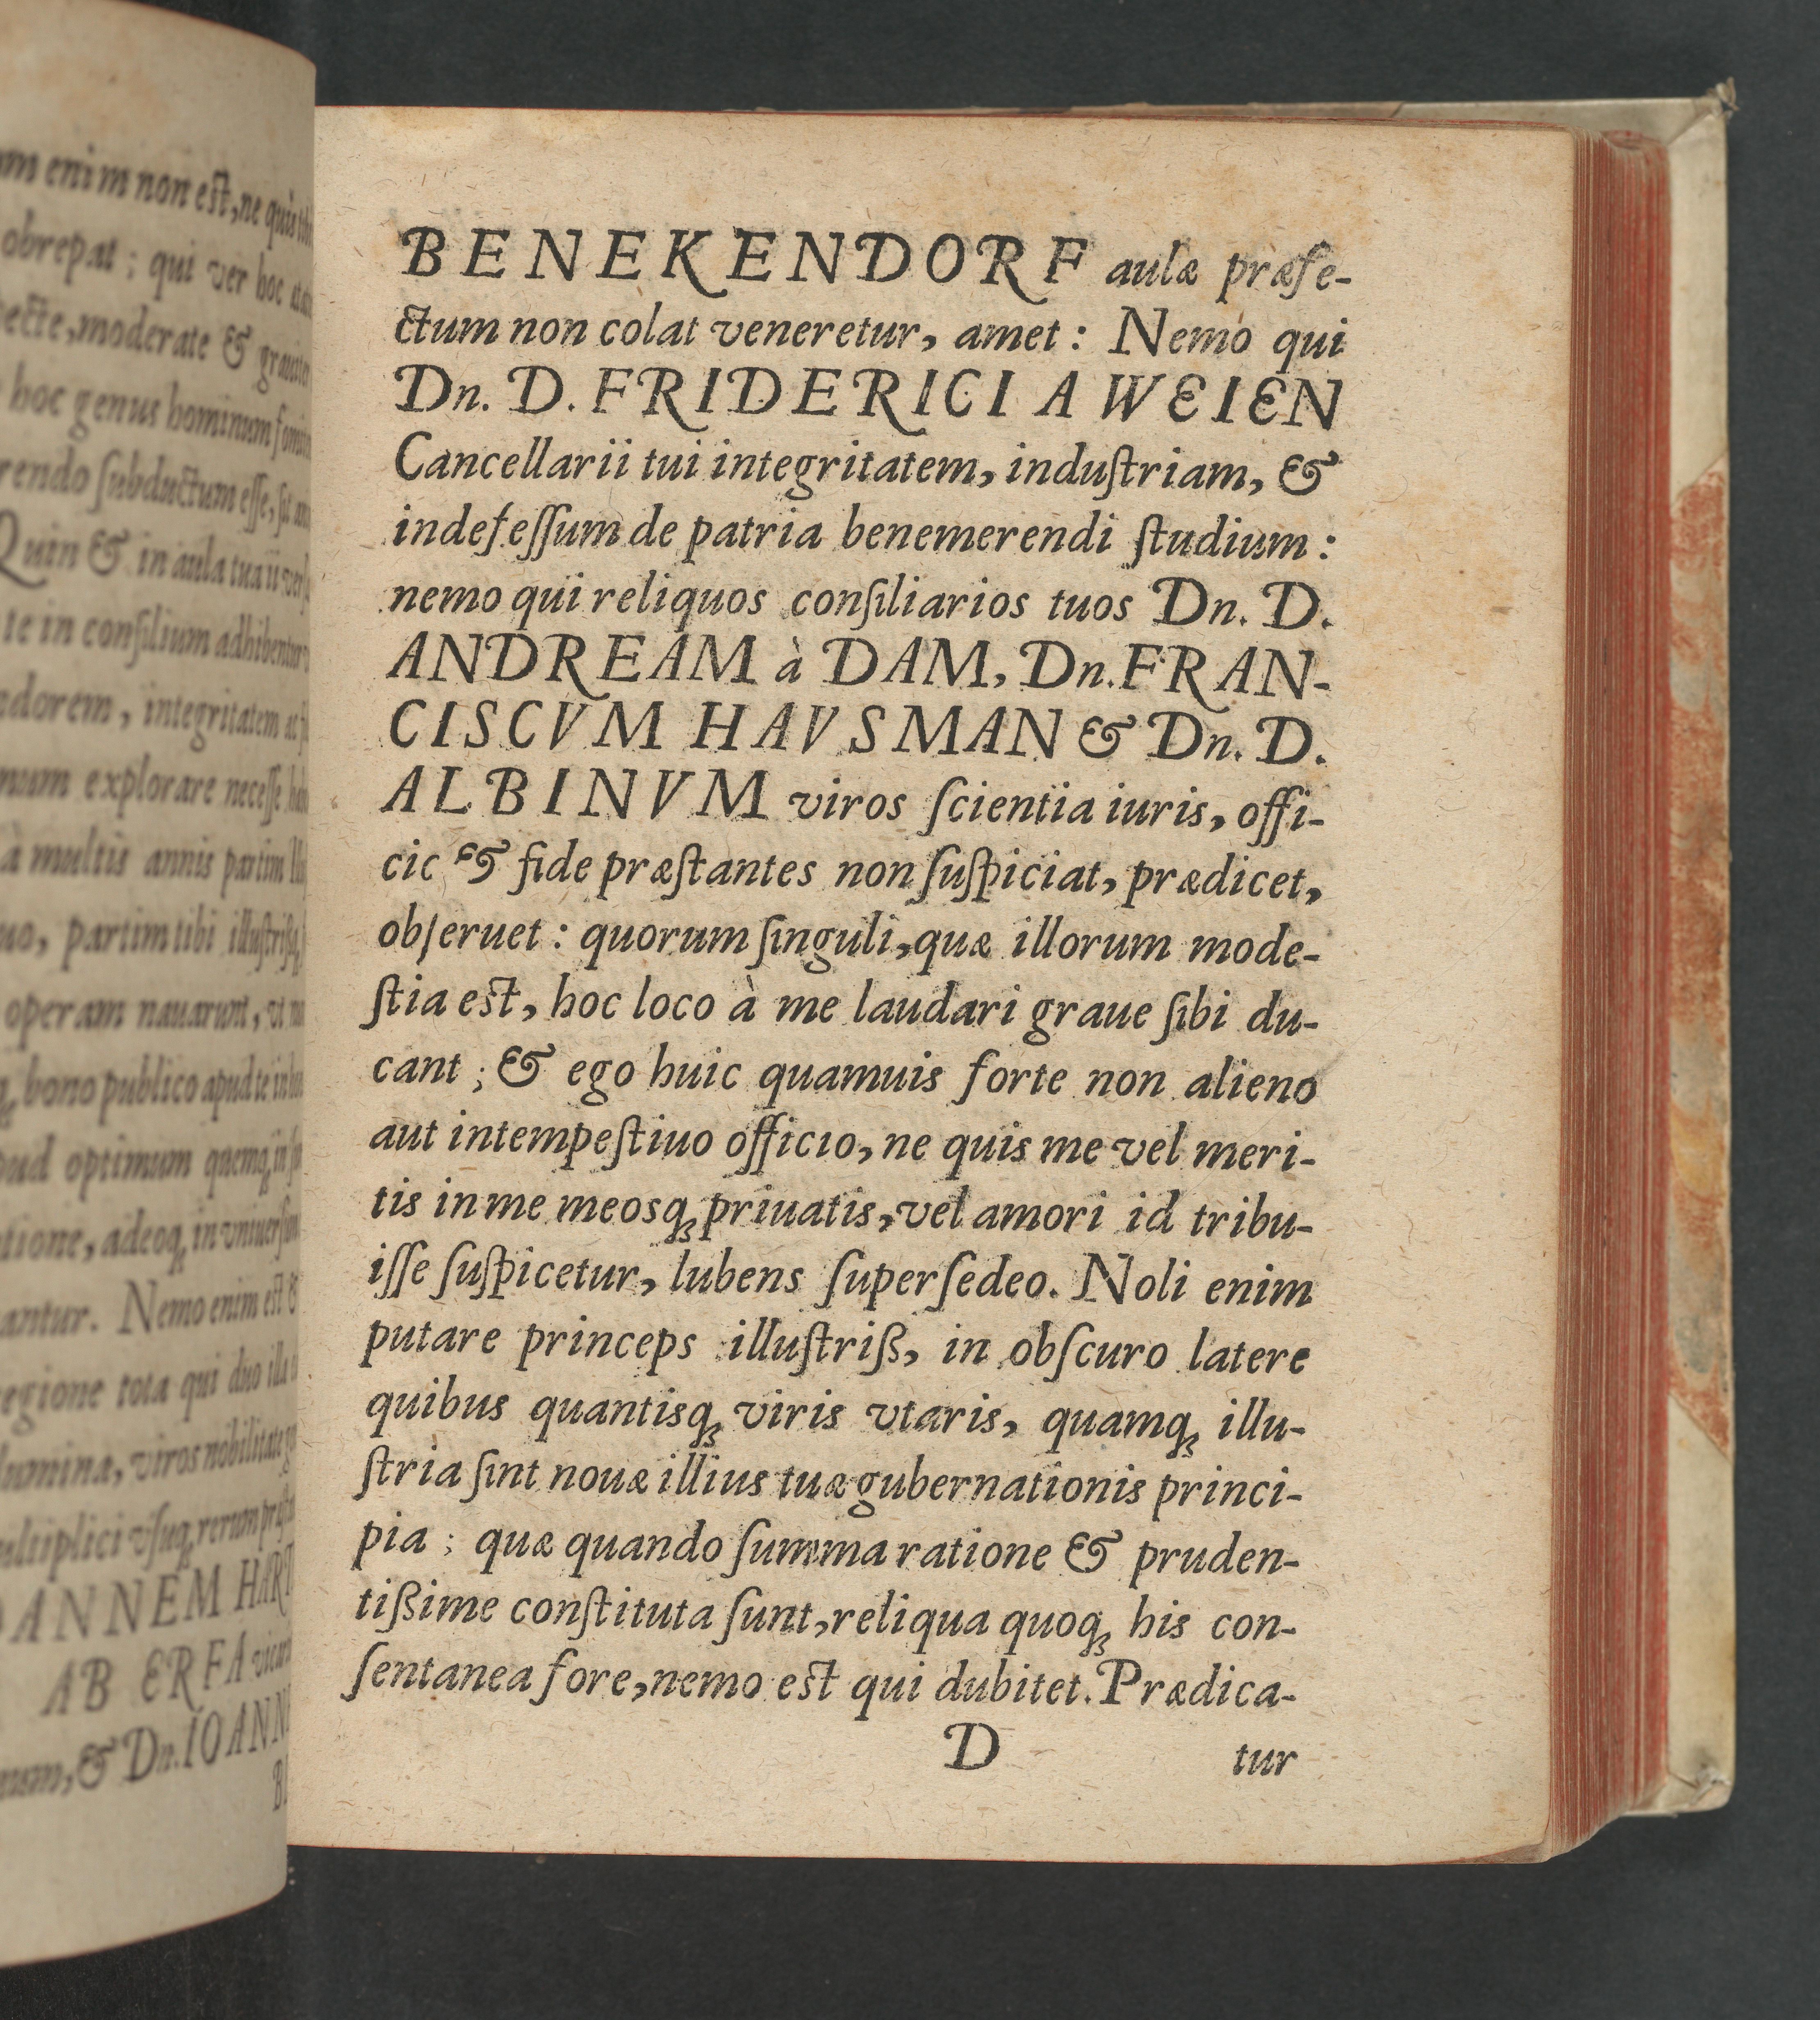 enim non est, ne quis
obrepat; qui ver hoc
moderate & grauiter
hoc genus hominum
subductum esse,
Quin & in aula tua ii
te in consilium adhibentur
integritatem ac
explorare necesse
à multis annis partim
partim tibi
operam nauarunt, vt
bono publico apud te in
optimum quemq; in
adeoq; in
Nemo enim est &
tota qui duo illa
viros nobilitate
rerum
HART
AB ERFA
& Dn. IOANN
BENEKENDORF aulæ præfe-
ctum non colat veneretur, amet: Nemo qui
Dn. D. FRIDERICI A WEIEN
Cancellarii tui integritatem, induſtriam, &
indefeſſum de patria benemerendi ſtudium:
nemo qui reliquos conſiliarios tuos Dn. D.
ANDREAM à DAM, Dn. FRAN-
CISCVM HAVSMAN & Dn. D.
ALBINVM viros ſcientia iuris, offi-
cic & fide præſtantes non ſuſpiciat, prædicet,
obſeruet: quorum ſinguli, quæ illorum mode-
ſtia eſt, hoc loco à me laudari graue ſibi du-
cant; & ego huic quamuis forte non alieno
aut intempeſtiuo officio, ne quis me vel meri-
tis in me meosq; priuatis, vel amori id tribu-
iſſe ſuſpicetur, lubens ſuperſedeo. Noli enim
putare princeps illuſtriß, in obſcuro latere
quibus quantisq; viris vtaris, quamq; illu-
ſtria ſint nouæ illius tuæ gubernationis princi-
pia; quæ quando ſumma ratione & pruden-
tißime conſtituta ſunt, reliqua quoq; his con-
ſentanea fore, nemo eſt qui dubitet. Prædica-
D tur